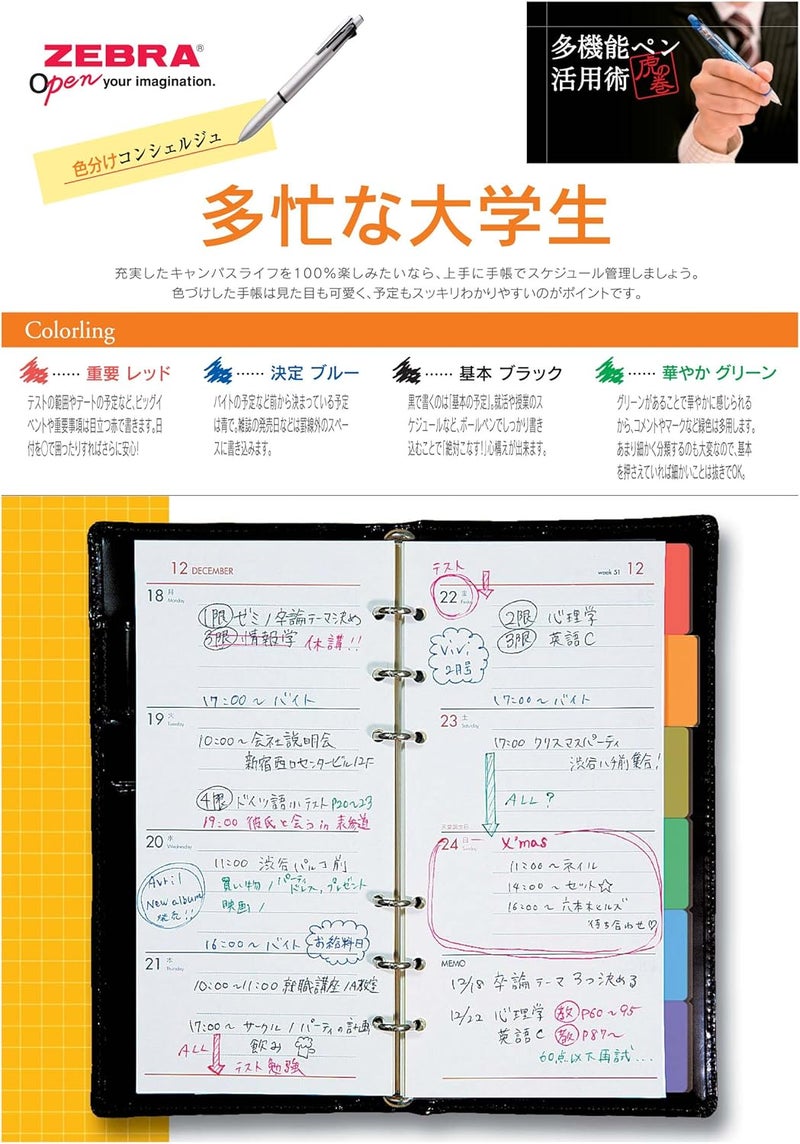 ZEBRA®
Open your imagination.
色分けコンシェルジュ
多機能ペン
活用術
虎の巻
多忙な大学生
充実したキャンパスライフを100%楽しみたいなら、上手に手帳でスケジュール管理しましょう。
色づけした手帳は見た目も可愛く、予定もスッキリわかりやすいのがポイントです。
Colorling
……重要 レッド
テストの範囲やデートの予定など、ビッグイ
ベントや重要事項は目立つ赤で書きます。日
付を○で囲ったりすればさらに安心!
……決定 ブルー
バイトの予定など前から決まっている予定
は青で。雑誌の発売日などは罫線外のスペー
スに書き込みます。
……基本 ブラック
黒で書くのは「基本の予定」。就活や授業のス
ケジュールなど、ボールペンでしっかり書き
込むことで「絶対こなす!」心構えが出来ます。
……華やか グリーン
グリーンがあることで華やかに感じられる
から、コメントやマークなど緑色は多用します。
あまり細かく分類するのも大変なので、基本
を押さえていれば細かいことは抜きでOK。
12 DECEMBER
18 月
Monday
1限 ゼミ/卒論テーマ決め
3限 情報学 休講!!
17:00~バイト
19 火
Tuesday
10:00~会社説明会
新宿西口センタービル12F
4限 ドイツ語小テストP20~23
19:00 彼氏と会う in 表参道
20 水
Wednesday
11:00 渋谷パルコ前
買い物/パーティドレス、プレゼント
映画/
Avril
New album
発売!!
16:00~バイト
お給料日
21 木
Thursday
10:00~11:00 就職講座/A教室
17:00~サークル/パーティの計画
飲み
ALL
テスト勉強
week 51 12
テスト
22 金
Friday
2限 心理学
3限 英語C
ViVi
2月号
17:00~バイト
23 土
Saturday
17:00 クリスマスパーティ
渋谷ハチ前集合!
ALL?
天皇誕生日
24 日
Sunday
X'mas
11:00~ネイル
14:00~セット☆
16:00~六本木ヒルズ
待ち合わせ♡
MEMO
12/18 卒論テーマ3つ決める
12/22 心理学 教 P60~95
英語C 教 P87~
60点以下再試...